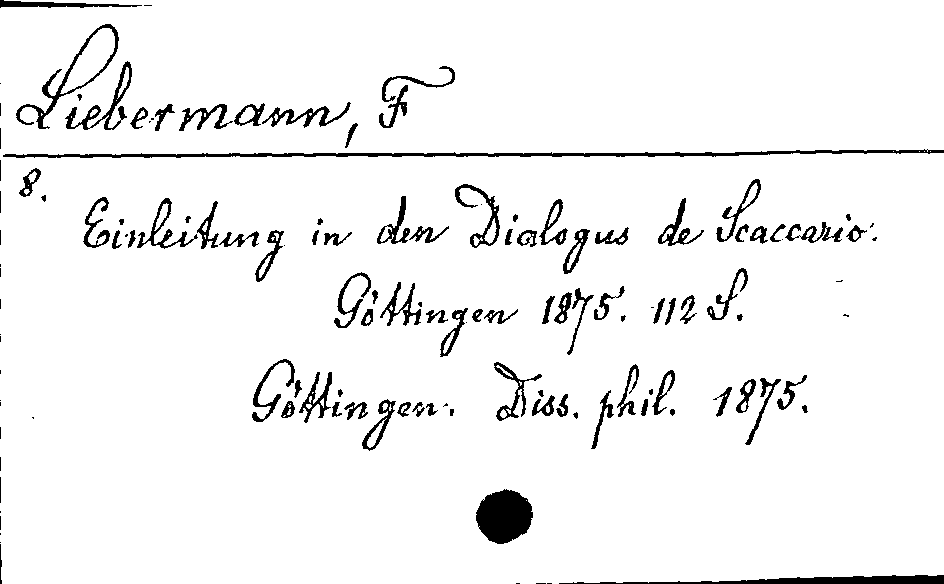 Liebermann, F
8.
Einleitung in den Dialogus de Scaccario.
Göttingen 1875. 112 S.
Göttingen. Diss. phil. 1875.